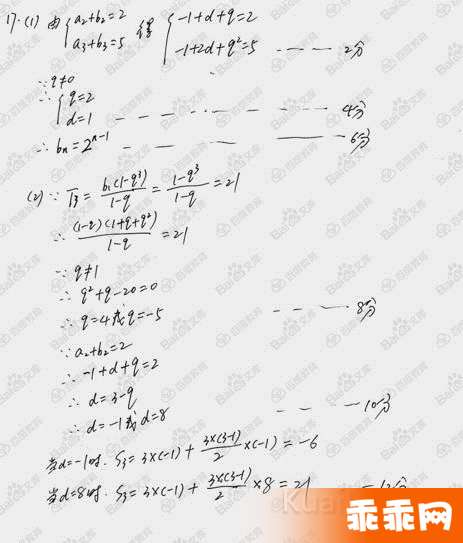 17.(1) 由{a₂+b₂=2 得{-1+d+q=2
a₃+b₃=5 -1+2d+q²=5 --- 2分
∵q≠0
∴{q=2
d=1 --- 4分
∴bₙ=2ⁿ⁻¹ --- 6分
(2) ∵T₃=b₁(1-q³)/(1-q)=(1-q³)/(1-q)=21
∴(1-q)(1+q+q²)/(1-q)=21
∵q≠1
∴q²+q-20=0
∴q=4或q=-5 --- 8分
∵a₂+b₂=2
∴-1+d+q=2
∴d=3-q
∴d=-1或d=8 --- 10分
当d=-1时. S₃=3×(-1)+3×(3-1)/2×(-1)=-6
当d=8时. S₃=3×(-1)+3×(3-1)/2×8=21 --- 12分
乖乖网